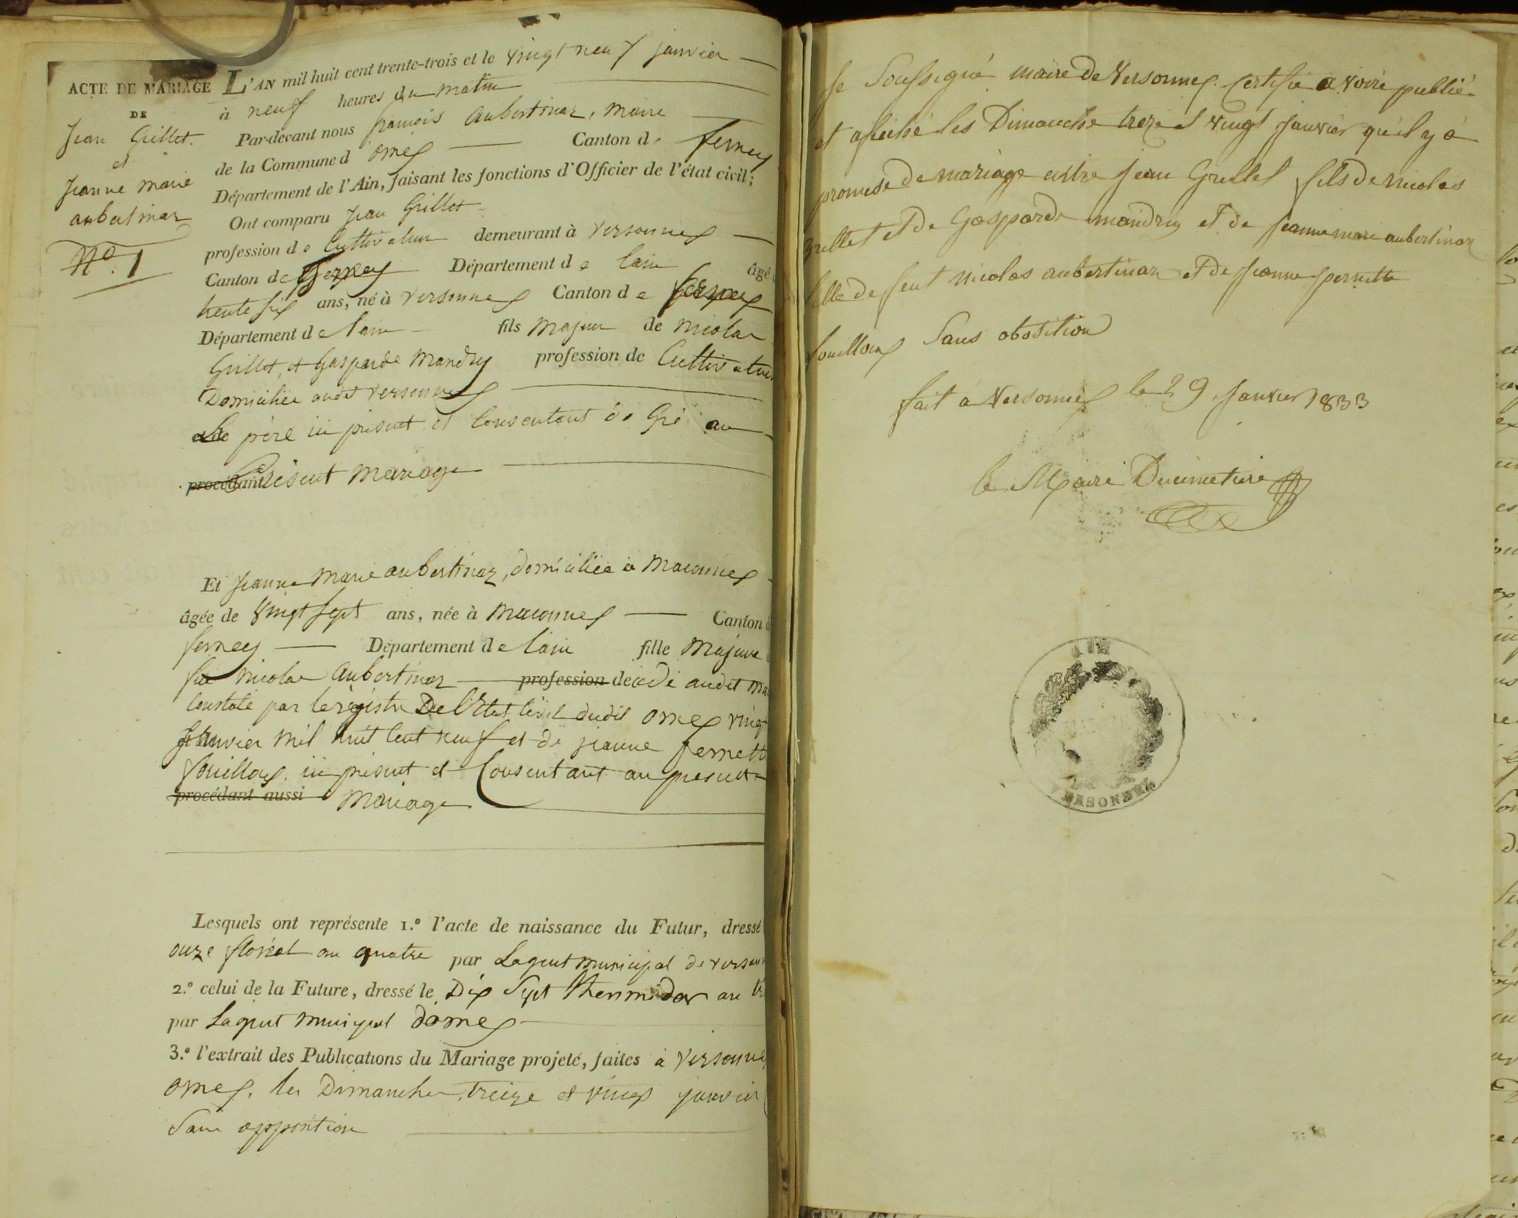 ACTE DE MARIAGE
DE
Jean Grillet
et
Jeanne marie
aubertinaz
N.º 1
L'AN mil huit cent trente-trois et le vingt neuf janvier
à neuf heures du matin
Par-devant nous françois aubertinaz, maire
de la Commune d'ornex Canton de ferney
Département de l'Ain, faisant les fonctions d'Officier de l'état civil;
Ont comparu Jean Grillet
profession de Cultivateur demeurant à versonnex
Canton de ferney Département de lain âgé
trente six ans, né à versonnex Canton de ferney
Département de lain fils majeur de nicolas
Grillet, et Gasparde Mandry profession de Cultivateur
Domiciliée audit versonnex
le père ici présent et Consentant de Gré au
procédant présent mariage
Et Jeanne Marie aubertinaz, domiciliée à Maconnex
âgée de vingt sept ans, née à Maconnex Canton
ferney Département de lain fille majeure
feu nicolas aubertinaz profession décédé audit
Constaté par le régistre De l'Etat Civil dudit ornex
janvier mil huit cent neuf et de jeanne fernette
fouilloux ici présent et Consentant au présent
procédant aussi mariage
Lesquels ont représente 1.º l'acte de naissance du Futur, dressé
onze floréal an quatre par Lagent municipal de
2.º celui de la Future, dressé le Dix Sept thermidor an
par Lagent municipal dornex
3.º l'extrait des Publications du Mariage projeté, faites à versonnex
ornex, les Dimanches treize et vingt janvier
Sans opposition
Je Soussigné maire de Versonnex Certifie avoire publié
et afiché les Dimanche treze et vingt Janvier qu'il y à
promese de mariage entre Jean Grellet fils de nicolas
grellet et de Gasparde mandry et de jeanne marie aubertinaz
fille de feut nicolas aubertinaz et de Jeanne pernette
fouilloux Sans obosition
fait à Versonnex le 29 Janvier 1833
le Maire Ducimetiere
AIN
VERSONNEX